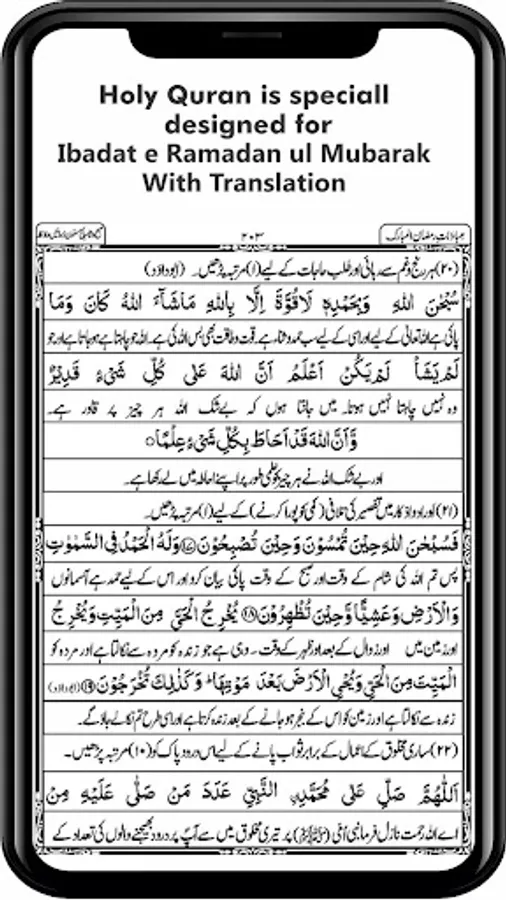 Holy Quran is speciall
designed for
Ibadat e Ramadan ul Mubarak
With Translation
عبادات رمضان المبارک
۲۰۳
(۲۰) ہر رنج و غم سے رہائی اور طلب حاجات کے لیے (۱) مرتبہ پڑھیں۔ (ابوداؤد)
سُبْحٰنَ اللّٰهِ وَبِحَمْدِهٖ لَا قُوَّةَ اِلَّا بِاللّٰهِ مَاشَآءَ اللّٰهُ كَانَ وَمَا
پاکی ہے اللہ تعالیٰ کے لیے اور اسی کے لیے سب حمد و ثناء ہے۔ قوت و طاقت بھی بس اللہ کی ہے۔ اللہ جو چاہتا ہے ہو جاتا ہے اور جو
لَمْ يَشَأْ لَمْ يَكُنْ اَعْلَمُ اَنَّ اللّٰهَ عَلٰى كُلِّ شَىْءٍ قَدِيْرٌ
وہ نہیں چاہتا نہیں ہوتا۔ میں جانتا ہوں کہ بے شک اللہ ہر چیز پر قادر ہے۔
وَّاَنَّ اللّٰهَ قَدْ اَحَاطَ بِكُلِّ شَىْءٍ عِلْمًا○
اور بے شک اللہ نے ہر چیز کو علمی طور پر اپنے احاطہ میں لے رکھا ہے۔
(۲۱) اوراد و اذکار میں تقصیر کی تلافی (کمی کو پورا کرنے) کے لیے (۱) مرتبہ پڑھیں۔
فَسُبْحٰنَ اللّٰهِ حِيْنَ تُمْسُوْنَ وَحِيْنَ تُصْبِحُوْنَ ﴿۱۷﴾ وَلَهُ الْحَمْدُ فِى السَّمٰوٰتِ
پس تم اللہ کی شام کے وقت اور صبح کے وقت پاکی بیان کرو اور اس کے لیے حمد ہے آسمانوں
وَالْاَرْضِ وَعَشِيًّا وَّحِيْنَ تُظْهِرُوْنَ ﴿۱۸﴾ يُخْرِجُ الْحَىَّ مِنَ الْمَيِّتِ وَيُخْرِجُ
اور زمین میں اور زوال کے بعد اور ظہر کے وقت۔ وہی ہے جو زندہ کو مردہ سے نکالتا ہے اور مردہ کو
الْمَيِّتَ مِنَ الْحَىِّ وَيُحْىِ الْاَرْضَ بَعْدَ مَوْتِهَا ؕ وَكَذٰلِكَ تُخْرَجُوْنَ ﴿۱۹﴾ (ابوداؤد)
زندہ سے نکالتا ہے اور زمین کو اس کے بنجر ہو جانے کے بعد زندہ کرتا ہے اور اسی طرح تم نکالے جاؤ گے۔
(۲۲) ساری مخلوق کے اعمال کے برابر ثواب پانے کے لیے اس درود پاک کو (۱۰) مرتبہ پڑھیں۔
اَللّٰهُمَّ صَلِّ عَلٰى مُحَمَّدِنِ النَّبِيِّ عَدَدَ مَنْ صَلّٰى عَلَيْهِ مِنْ
اے اللہ رحمت نازل فرما نبی اُمّی (ﷺ) پر تیری مخلوق میں سے آپؐ پر درود بھیجنے والوں کی تعداد کے